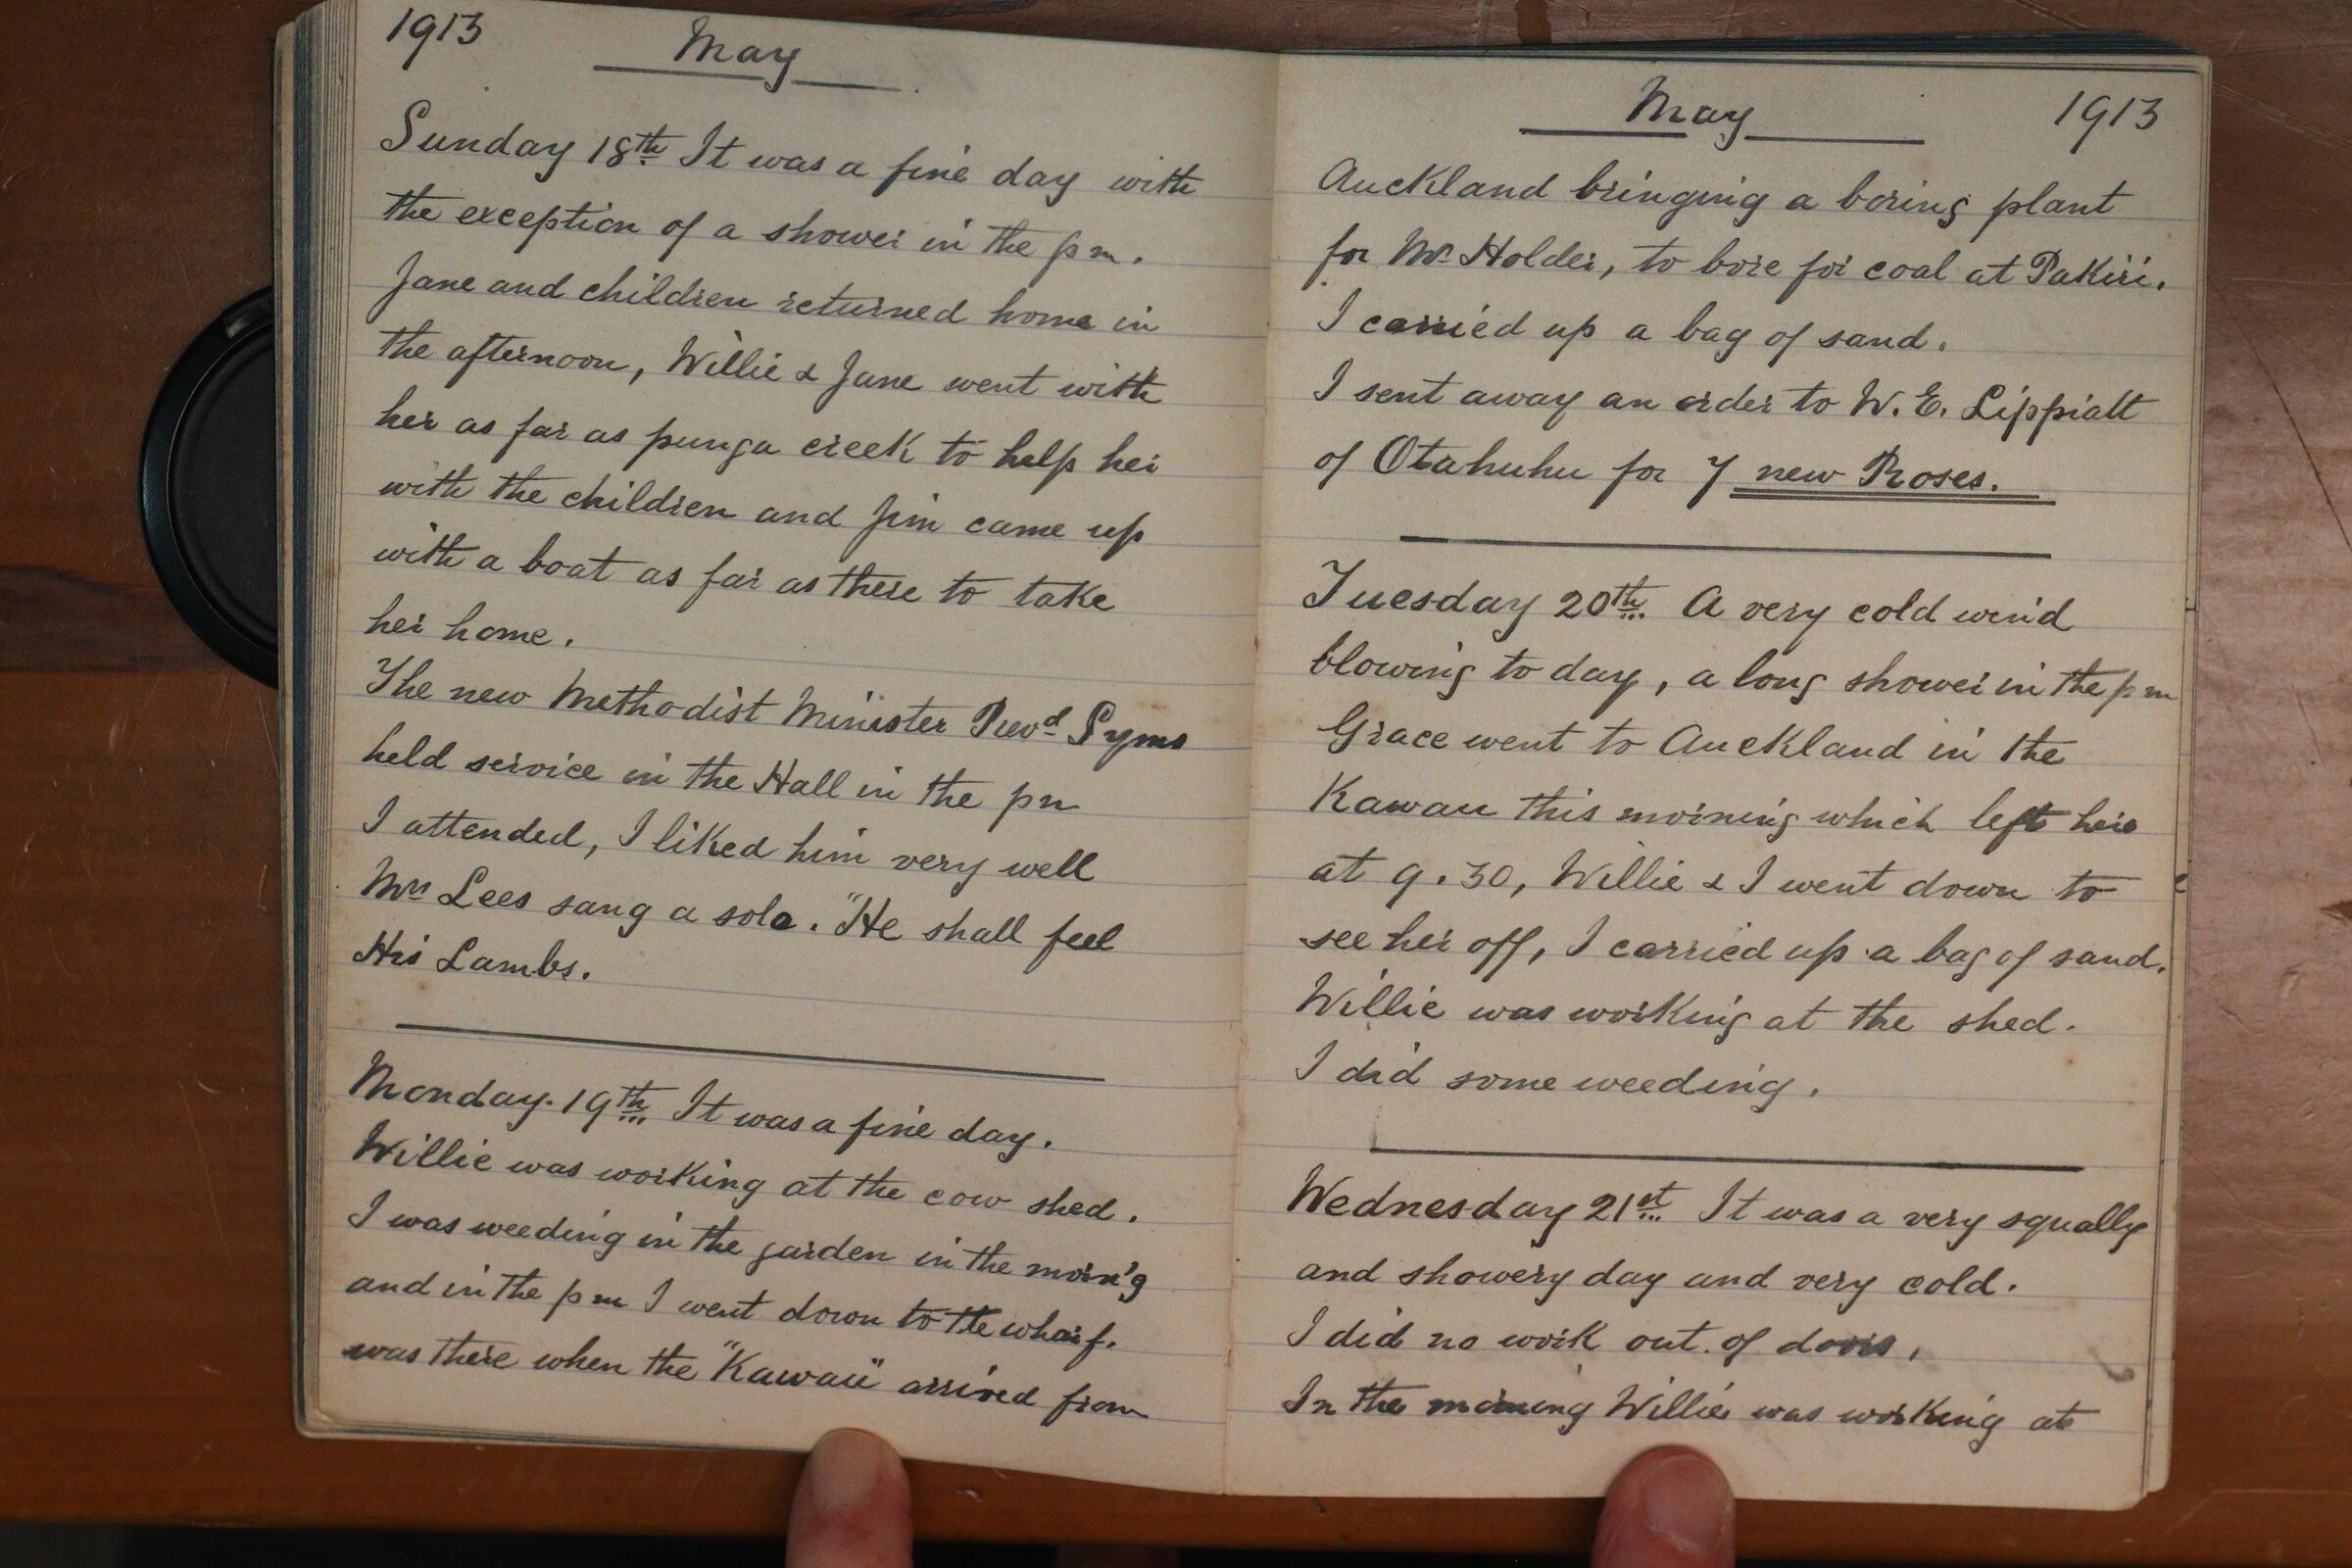 1913
May
Sunday 18th It was a fine day with
the exception of a shower in the pm.
Jane and children returned home in
the afternoon, Willie & Jane went with
her as far as punga creek to help her
with the children and Jim came up
with a boat as far as there to take
her home.
The new Methodist Minister Revd Syms
held service in the Hall in the pm
I attended, I liked him very well
Mrs Lees sang a solo. "He shall feel
His Lambs.
Monday. 19th It was a fine day.
Willie was working at the cow shed.
I was weeding in the garden in the morn'g
and in the pm I went down to the wharf.
was there when the "Kawau" arrived from
May 1913
Auckland bringing a boring plant
for Mr Holder, to bore for coal at Pakiri.
I carried up a bag of sand.
I sent away an order to W. E. Lippiatt
of Otahuhu for 7 new Roses.
Tuesday 20th. A very cold wind
blowing to day, a long shower in the pm
Grace went to Auckland in the
Kawau this morning which left here
at 9.30, Willie & I went down to
see her off, I carried up a bag of sand.
Willie was working at the shed.
I did some weeding.
Wednesday 21st It was a very squally
and showery day and very cold.
I did no work out of doors,
In the morning Willie was working at